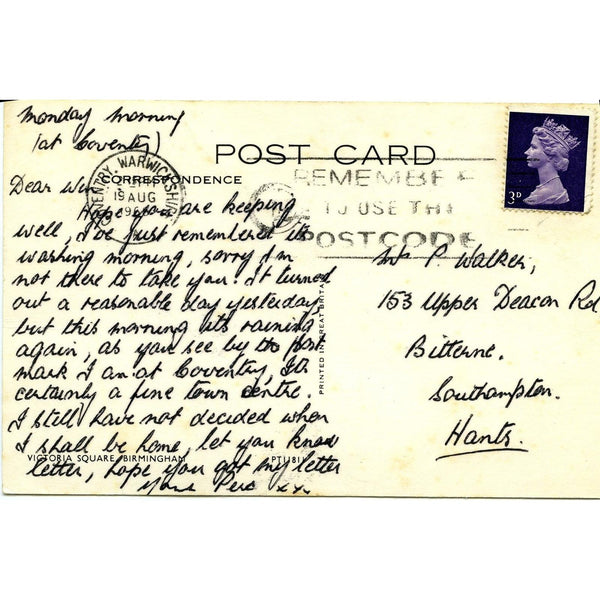 Monday Morning
(at Coventry)
POST CARD
CORRESPONDENCE
COVENTRY WARWICKSHIRE
19 AUG
REMEMBER
TO USE THE
POSTCODE
3D
Dear Win
Hope you are keeping
well, I've just remembered its
washing morning, sorry I'm
not there to take you. It turned
out a reasonable day yesterday
but this morning its raining
again, as you see by the post
mark I am at Coventry, Its
certainly a fine town centre.
I still have not decided when
I shall be home, let you know
letter, hope you got my letter
Yours Perc xx
VICTORIA SQUARE, BIRMINGHAM
PRINTED IN GREAT BRITAIN
P. Walker,
153 Upper Deacon Rd
Bitterne.
Southampton.
Hants.